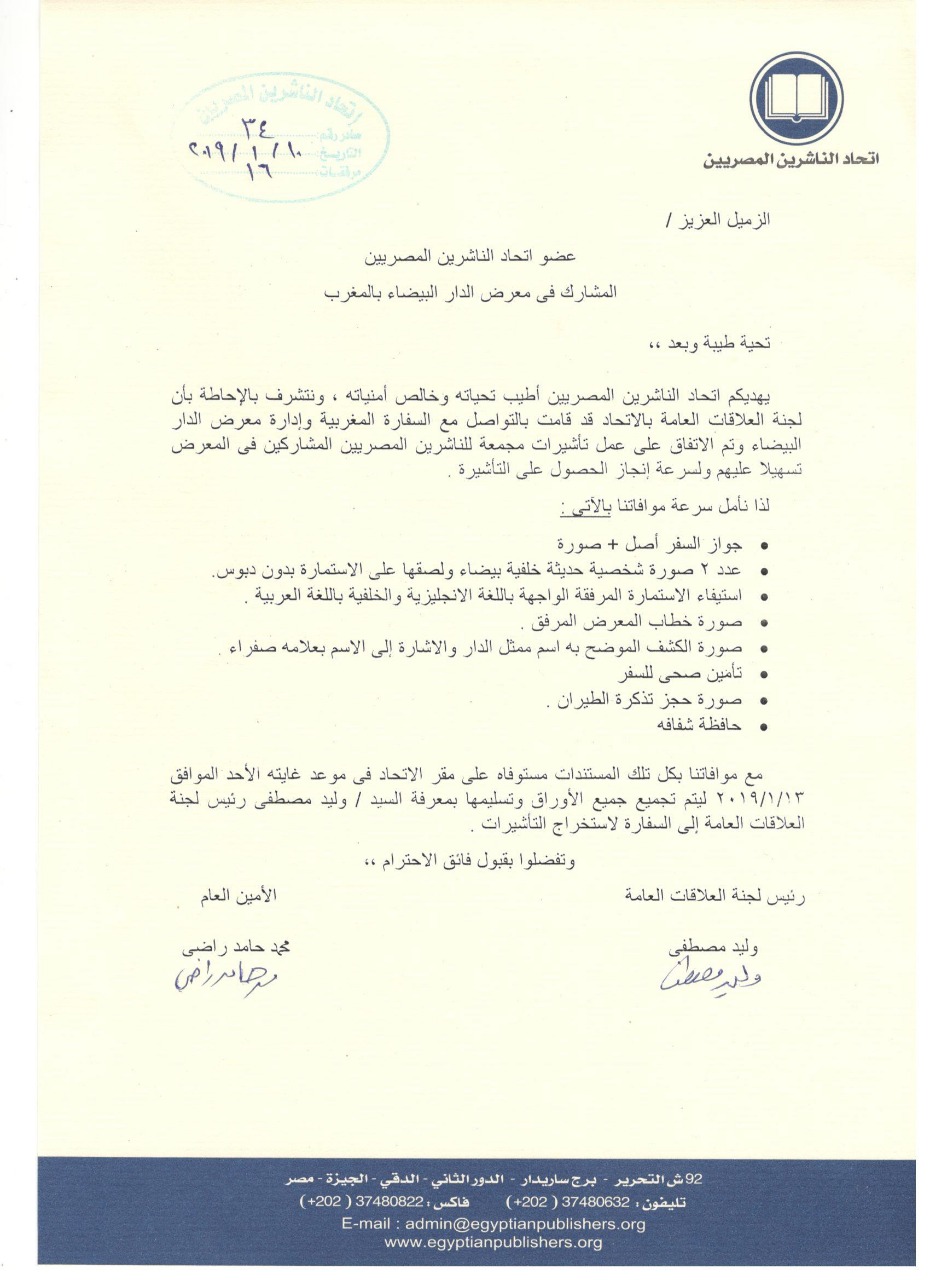 اتحاد الناشرين المصريين
اتحاد الناشرين المصريين
صادر رقم: ٣٤
التاريخ: ١٠ / ١ / ٢٠١٩
مرفقات: ١٦
الزميل العزيز /
عضو اتحاد الناشرين المصريين
المشارك فى معرض الدار البيضاء بالمغرب
تحية طيبة وبعد ،،
يهديكم اتحاد الناشرين المصريين أطيب تحياته وخالص أمنياته ، ونتشرف بالإحاطة بأن
لجنة العلاقات العامة بالاتحاد قد قامت بالتواصل مع السفارة المغربية وإدارة معرض الدار
البيضاء وتم الاتفاق على عمل تأشيرات مجمعة للناشرين المصريين المشاركين فى المعرض
تسهيلا عليهم ولسرعة إنجاز الحصول على التأشيرة .
لذا نأمل سرعة موافاتنا بالآتى :
• جواز السفر أصل + صورة
• عدد ٢ صورة شخصية حديثة خلفية بيضاء ولصقها على الاستمارة بدون دبوس.
• استيفاء الاستمارة المرفقة الواجهة باللغة الانجليزية والخلفية باللغة العربية .
• صورة خطاب المعرض المرفق .
• صورة الكشف الموضح به اسم ممثل الدار والاشارة إلى الاسم بعلامه صفراء .
• تأمين صحى للسفر
• صورة حجز تذكرة الطيران .
• حافظة شفافه
مع موافاتنا بكل تلك المستندات مستوفاه على مقر الاتحاد فى موعد غايته الأحد الموافق
٢٠١٩/١/١٣ ليتم تجميع جميع الأوراق وتسليمها بمعرفة السيد / وليد مصطفى رئيس لجنة
العلاقات العامة إلى السفارة لاستخراج التأشيرات .
وتفضلوا بقبول فائق الاحترام ،،
رئيس لجنة العلاقات العامة
الأمين العام
وليد مصطفى
محمد حامد راضى
وليد مصطفى
محمد حامد راضي
92 ش التحرير - برج ساريدار - الدور الثاني - الدقي - الجيزة - مصر
تليفون : 37480632 ( 202+) فاكس : 37480822 ( 202+)
E-mail : admin@egyptianpublishers.org
www.egyptianpublishers.org